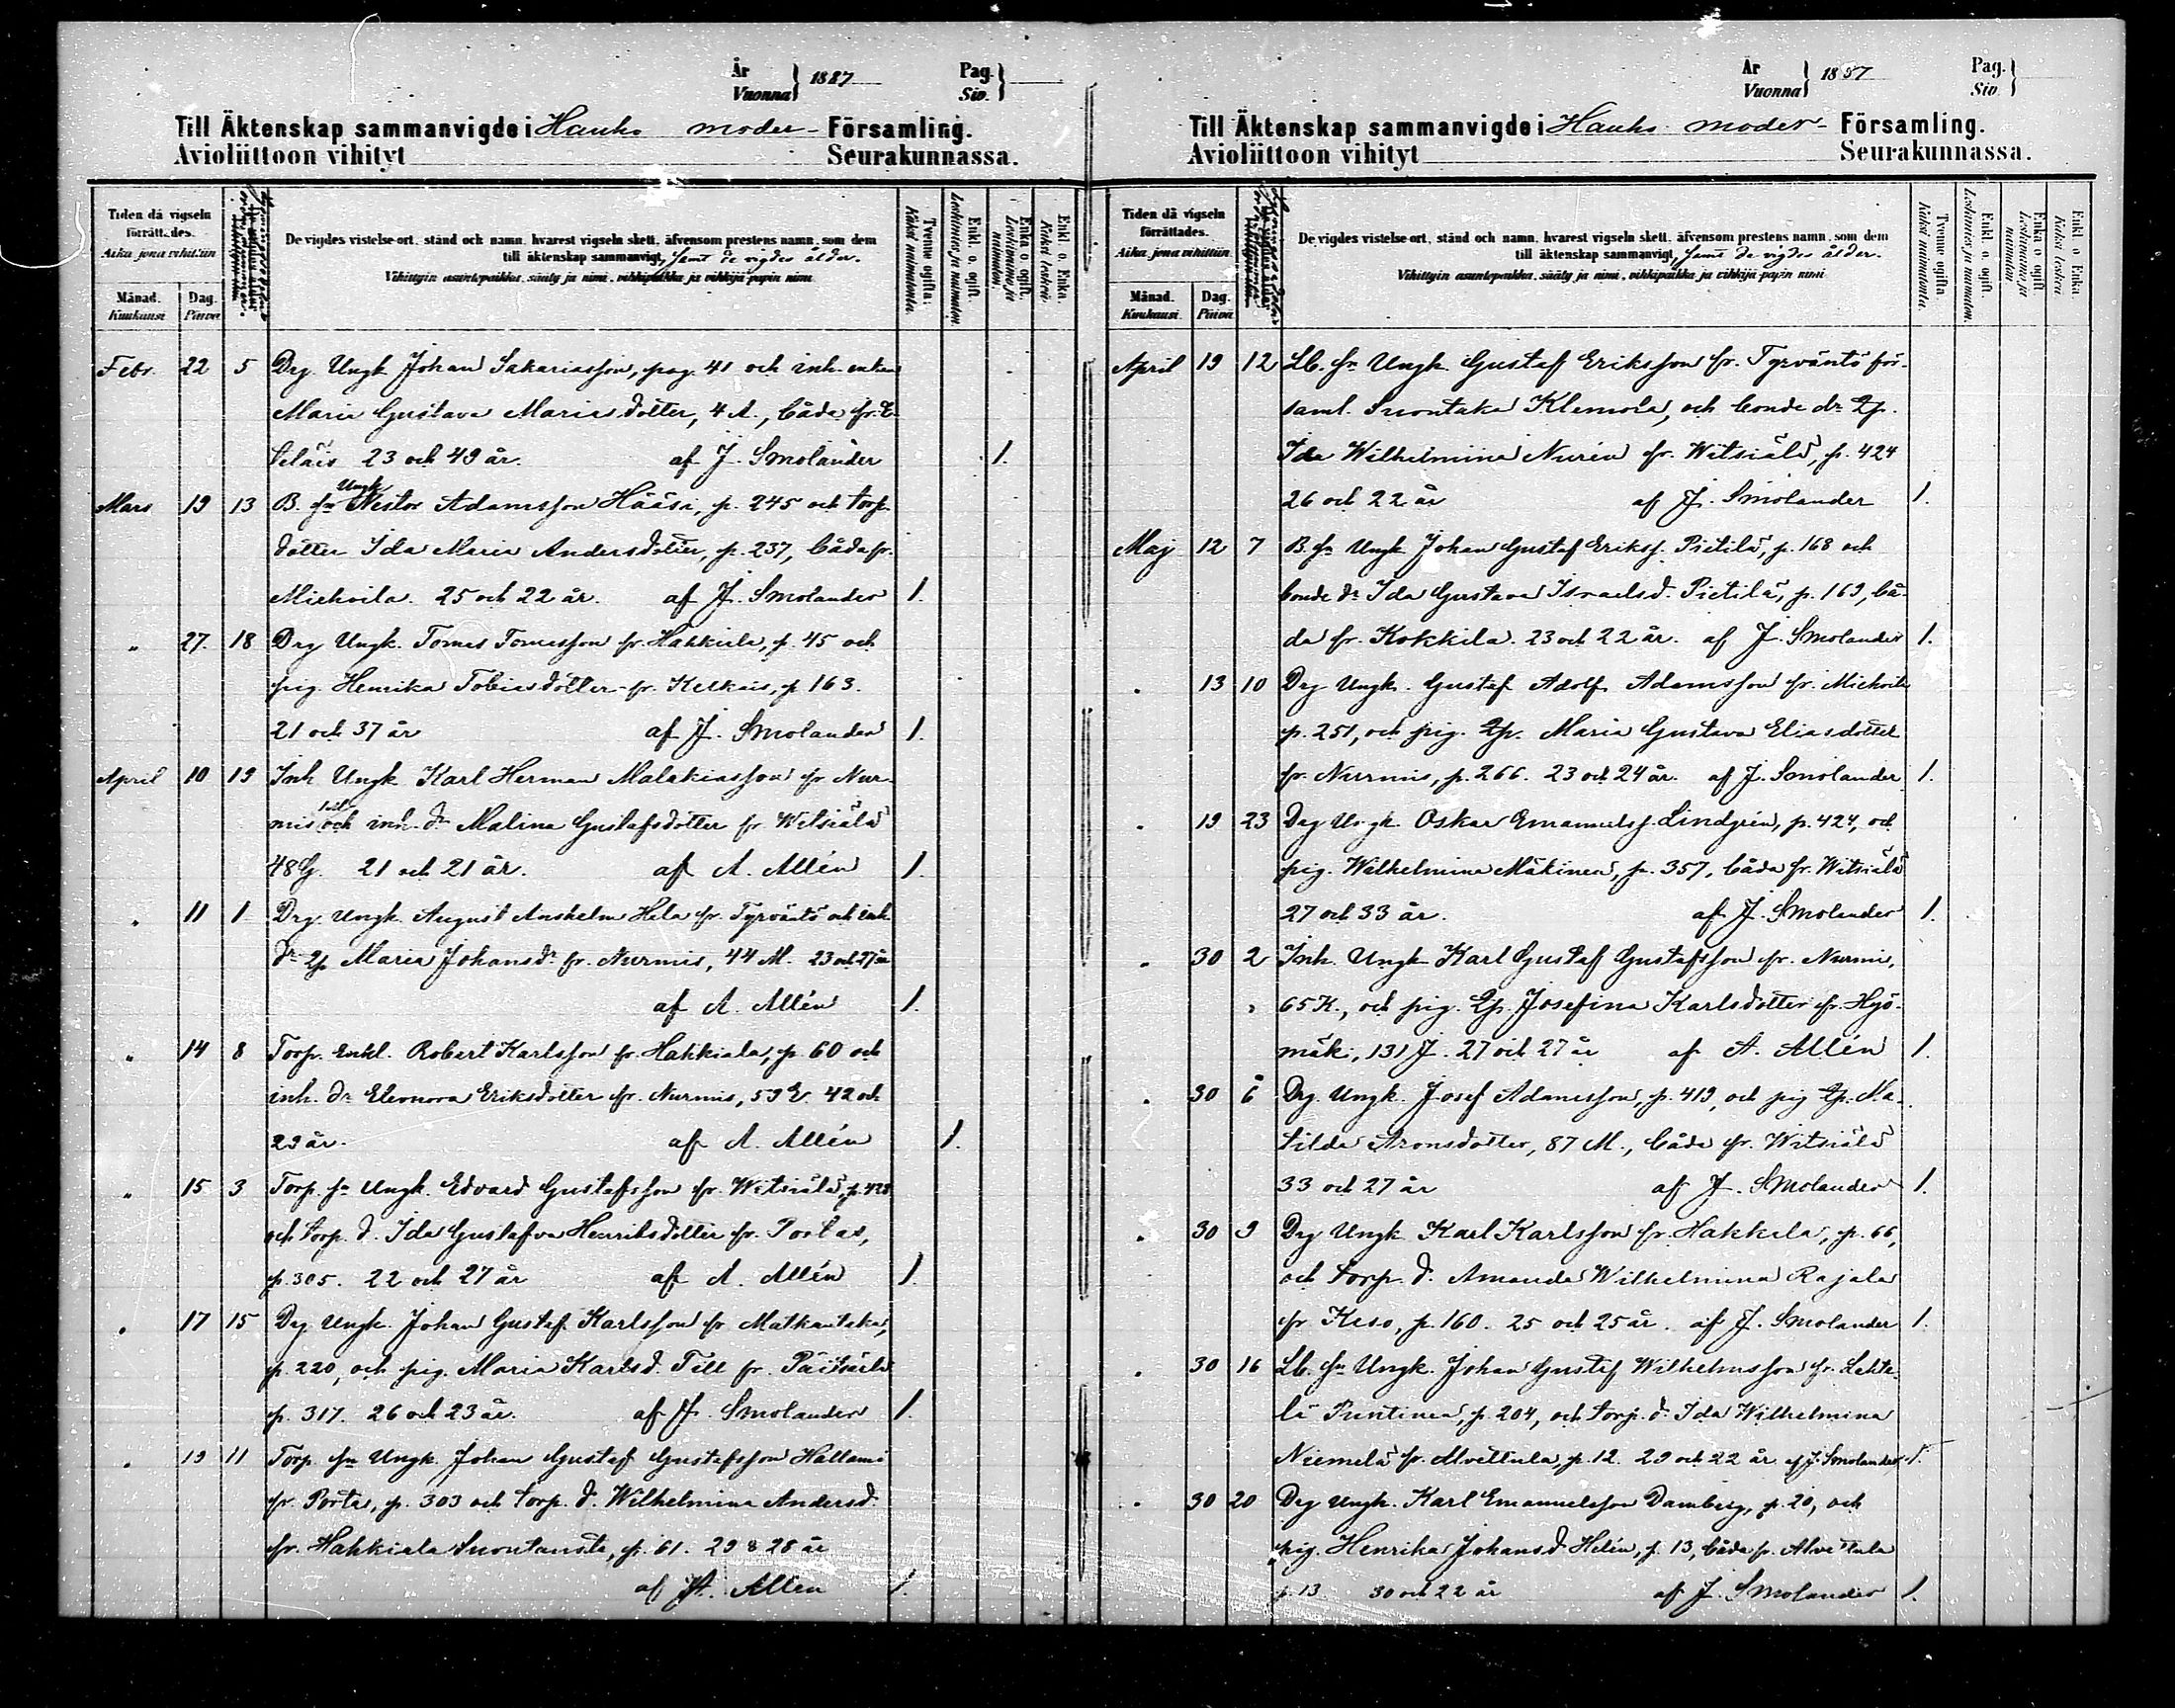 År
Vuonna 1887 Pag.
Siv.
Till Äktenskap sammanvigde i Hauho moder- Församling.
Avioliittoon vihityt Seurakunnassa.
Tiden då vigseln förrättades.
Aika jona vihittiin
Månad. Kuukausi
Dag. Päivä
De vigdes vistelse-ort, stånd och namn, hvarest vigseln skett, äfvensom prestens namn, som dem
till äktenskap sammanvigt, samt de vigdes ålder.
Vihittyin asuntopaikka, sääty ja nimi, vihkipaikka ja vihkijä-papin nimi
Tvenne ogifta: Kaksi naimatonta.
Enkl. o. ogift. Leskimies ja naimaton.
Enka o. ogift. Leskivaimo ja naimaton.
Enkl. o. Enka. Kaksi leskeä.
Febr. 22 5 Drg. Ungk. Johan Sakariasson, pag. 41 och inh. enkan
Maria Gustava Mariasdotter, 4 A., båda fr.
23 och 49 år. af J. Smolander 1.
Mars 19 13 B. sn Ungk Nestor Adamsson Hääsi, p. 245 och torp.
dotter Ida Maria Andersdotter, p. 237, båda fr.
Miehoila. 25 och 22 år. af J. Smolander 1.
" 27. 18 Drg Ungk. Tomas Tomasson fr. Hahkiala, p. 45 och
pig. Henrika Tobiasdotter fr. Kelkais, p 163.
21 och 37 år af J. Smolander 1.
April 10 19 Inh Ungk Karl Herman Malakiasson fr Nur-
mis och inh. dr Malina Gustafsdotter fr Witsiälä
48 G. 21 och 21 år. af A. Allén 1.
" 11 1 Drg. Ungk. August Anshelm Hela fr. Tyrväntö och inh
dr Jp Maria Johansdr fr. Nurmis, 44 M. 23 och 27 år
af A. Allén 1.
" 14 8 Torp. Enkl. Robert Karlsson fr. Hahkiala, p. 60 och
inh. dr Eleonora Eriksdotter fr. Nurmis, 59 E. 42 och
29 år. af A. Allén 1.
" 15 3 Torp. sn Ungk. Edvard Gustafsson fr. Witsiälä, p. 428
och torp. d. Ida Gustafva Henriksdotter fr. Portas,
p. 305. 22 och 27 år af A. Allén 1.
" 17 15 Drg Ungk. Johan Gustaf Karlsson fr Matkantaka,
p. 220, och pig. Maria Karlsd. Fell fr.
p. 317. 26 och 23 år. af J. Smolander 1.
" 19 11 Torp. sn Ungk. Johan Gustaf Gustafsson Hallami
fr. Portas, p. 303 och torp. d. Wilhelmina Andersd.
fr. Hahkiala p. 61. 29 & 28 år
af A. Allén 1.
År
Vuonna 1887 Pag.
Siv
Till Äktenskap sammanvigde i Hauho moder- Församling.
Avioliittoon vihityt Seurakunnassa.
Tiden då vigseln förrättades.
Aika jona vihittiin
Månad. Kuukausi.
Dag. Päivä
De vigdes vistelse-ort, stånd och namn, hvarest vigseln skett, äfvensom prestens namn, som dem
till äktenskap sammanvigt, samt de vigdes ålder.
Vihittyin asuntopaikka, sääty ja nimi, vihkipaikka ja vihkijä-papin nimi
Tvenne ogifta. Kaksi naimatonta.
Enkl. o. ogift. Leskimies ja naimaton.
Enka o. ogift. Leskivaimo ja naimaton
Enkl. o Enka. Kaksi leskeä
April 19 12 Lb. sn Ungk. Gustaf Eriksson fr. Tyrväntö för-
saml. Suontaka Klemola, och bonde dr Jp.
Ida Wilhelmina Nurén fr. Witsiälä, p. 424
26 och 22 år af J. Smolander 1.
Maj 12 7 B. sn Ungk Johan Gustaf Eriksf. Pietilä, p. 168 och
bonde dr Ida Gustava Israelsd. Pietilä, p. 169, bå-
da fr. Kokkila. 23 och 22 år. af J. Smolander 1.
" 13 10 Drg Ungk. Gustaf Adolf Adamsson fr. Miehoila
p. 251, och pig. Jp. Maria Gustava Eliasdotter
fr. Nurmis, p. 266. 23 och 24 år. af J. Smolander 1.
" 19 23 Drg Ungk. Oskar Emanuelsf. Lindgrén, p. 424, och
pig. Wilhelmina Mäkinen, p. 357, båda fr. Witsiälä
27 och 33 år. af J. Smolander 1.
" 30 2 Inh. Ungk Karl Gustaf Gustafsson fr. Nurmis,
65 K., och pig. Jp. Josefina Karlsdotter fr. Hyö-
mäki, 131 J. 27 och 27 år af A. Allén 1.
" 30 6 Drg. Ungk. Josef Adamsson, p. 419, och pig Jp. Ma-
tilda Aronsdotter, 87 M., båda fr. Witsiälä
33 och 27 år af J. Smolander 1.
" 30 9 Drg Ungk Karl Karlsson fr. Hakkala, p. 66,
och torp. d. Amanda Wilhelmina Rajala
fr Keso, p. 160. 25 och 25 år. af J. Smolander 1.
" 30 16 Lb. sn Ungk. Johan Gustaf Wilhelmsson fr. Leht-
lä Puntinen, p. 204, och torp. d. Ida Wilhelmina
Niemelä fr. Alvettula, p. 12. 29 och 22 år af J. Smolander 1.
" 30 20 Drg Ungk. Karl Emanuelsson Damberg, p. 20, och
pig. Henrika Johansd. Helin, p. 13, båda fr. Alvettula
p. 13 30 och 22 år af J. Smolander 1.